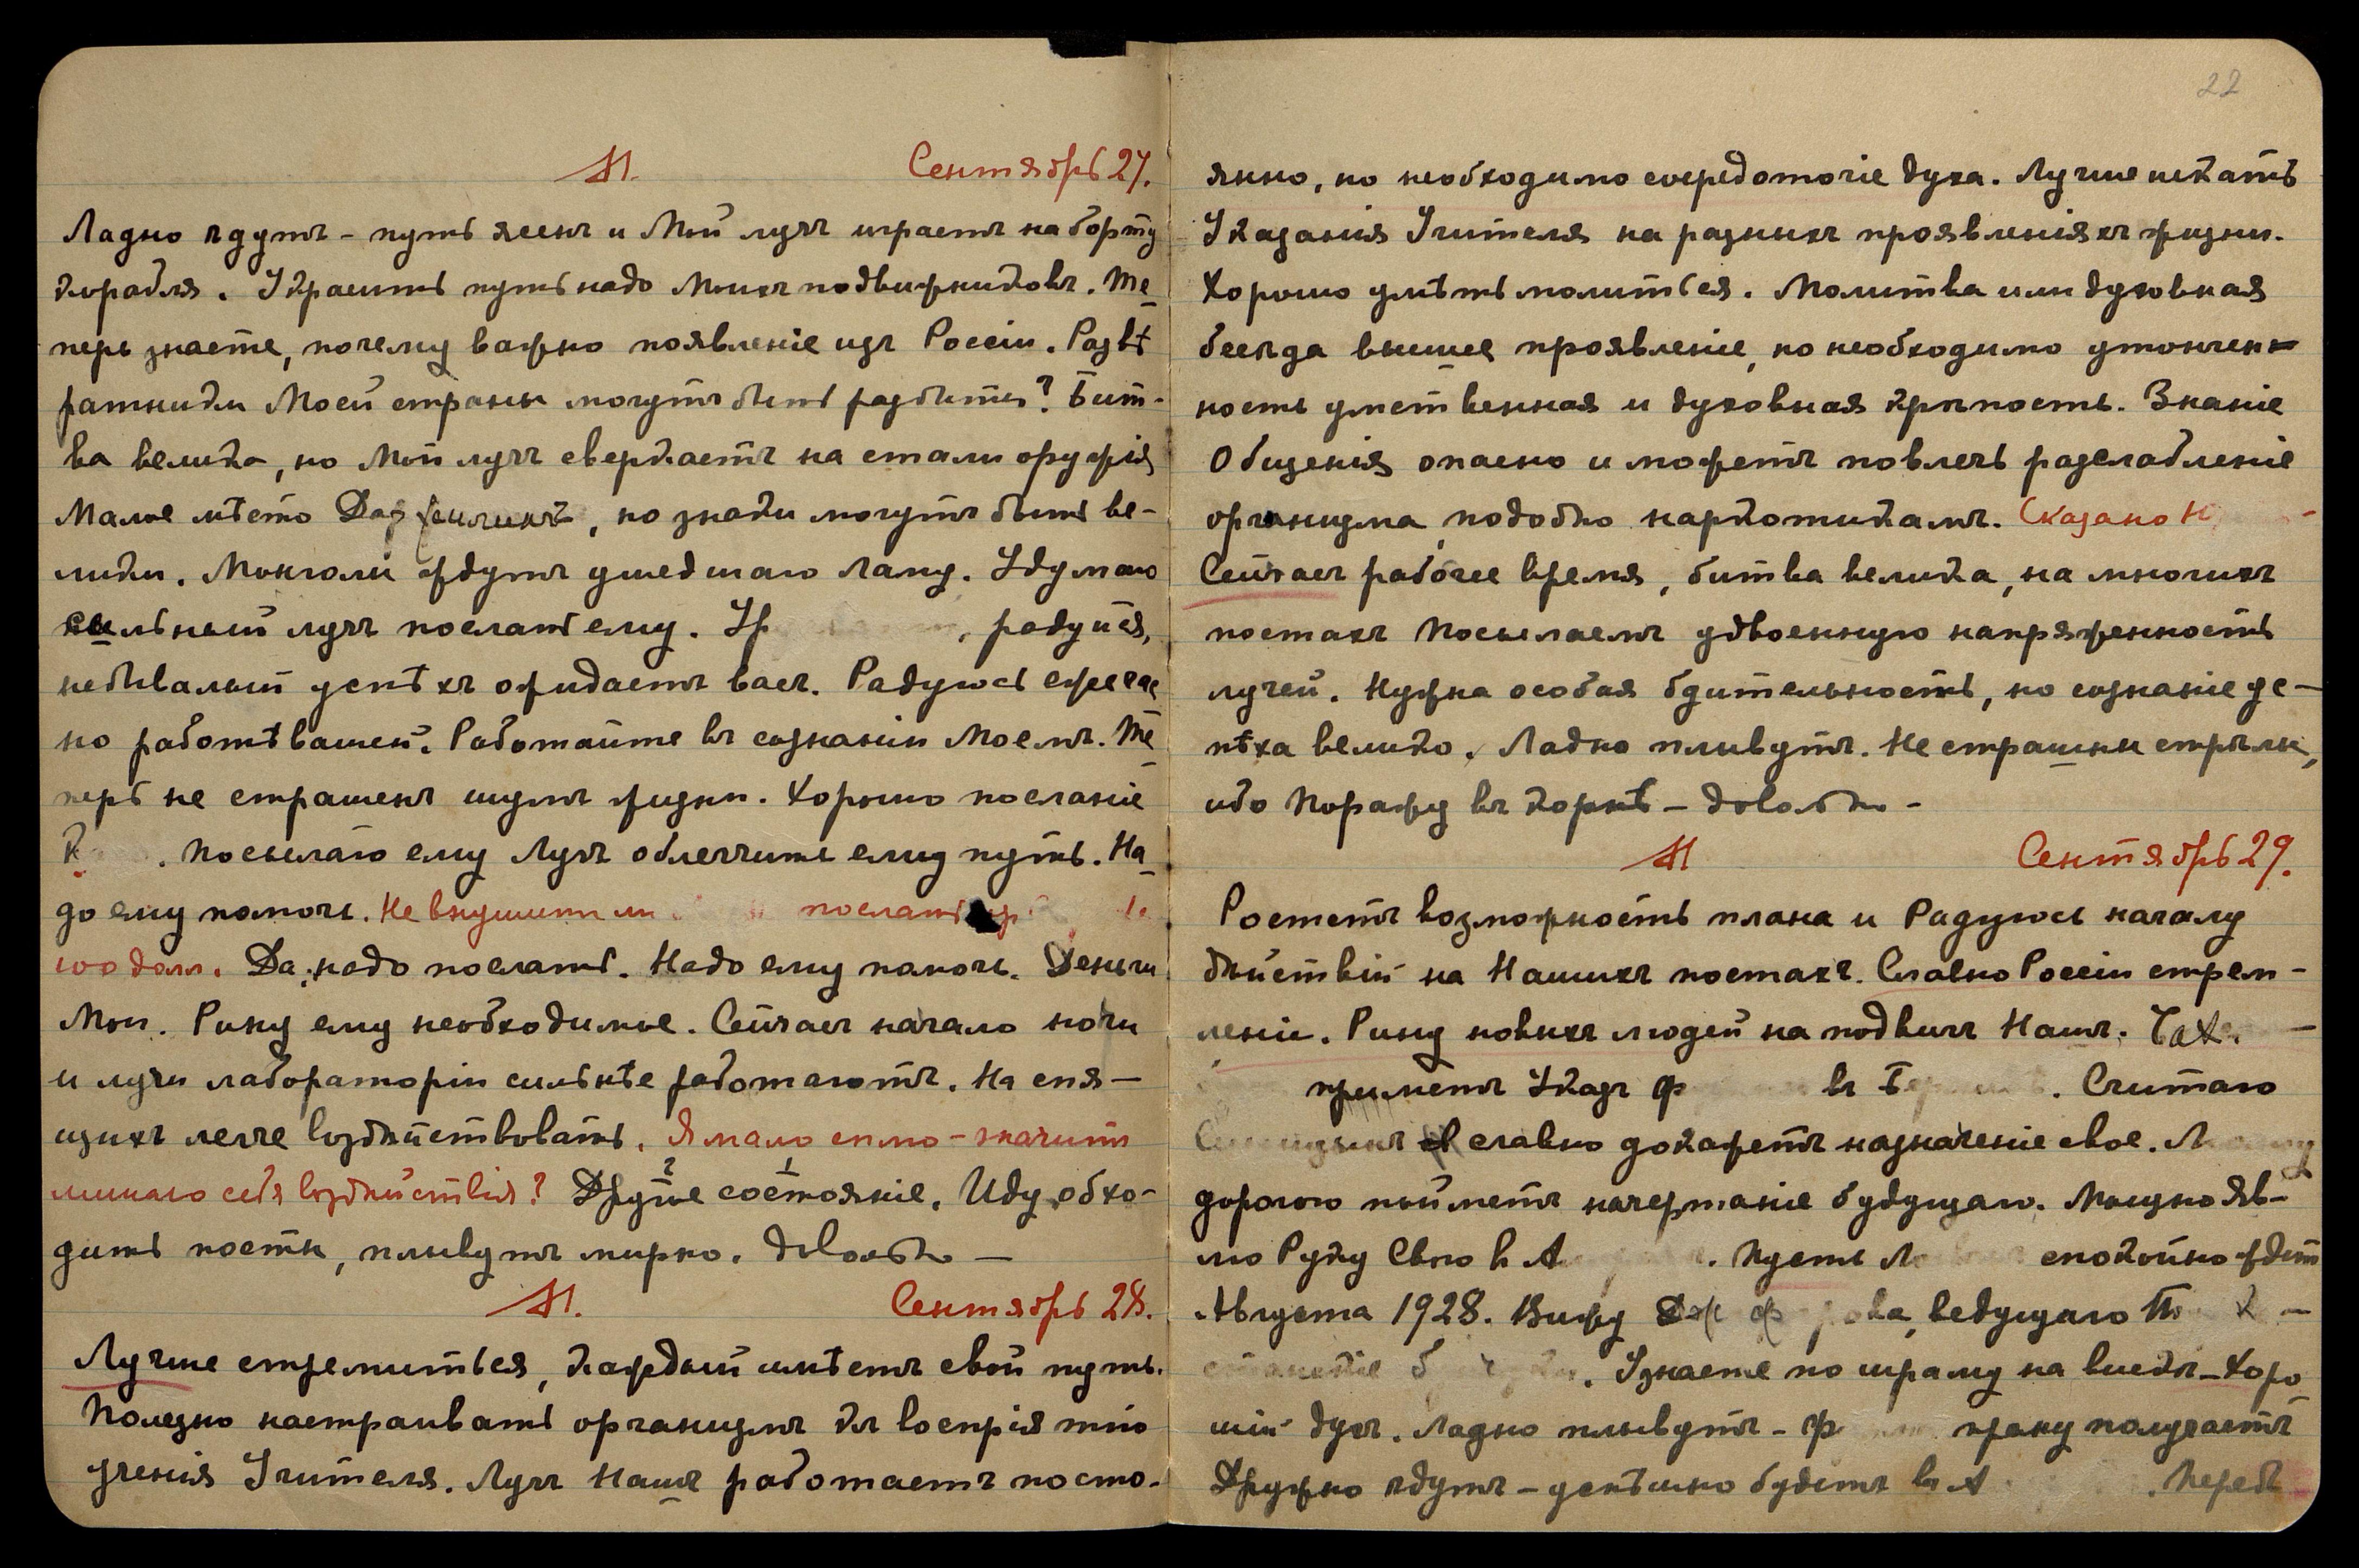 М. Сентябрь 27.
Ладно ѣдутъ - путь ясенъ и Мой лучъ играетъ на борту
корабля. Украсить путь надо Моихъ подвижниковъ. Те-
перь знаете, почему важно появленіе изъ Россіи. Развѣ
ратники Моей страны могутъ быть разбиты? Бит-
ва велика, но Мой лучъ сверкаетъ на стали оружія
Малое мѣсто, но знаки могутъ быть ве-
лики. Монголы ждутъ ушедшаго Ламу. Удумаю
сильный лучъ послать ему. Ур , радуйся,
небывалый успѣхъ ожидаетъ васъ. Радуюсь ежечас
но работѣ вашей. Работайте въ сознаніи Моемъ. Те
перь не страшенъ шумъ жизни. Хорошо посланіе
К . Посылаю ему Лучъ облегчить ему путь. На-
до ему помочь. Не внушить ли послать
100 долл. Да, надо послать. Надо ему помочь. Деньги
Мои. Рину ему необходимое. Сейчасъ начало ночи
и лучи лабораторіи сильнѣе работаютъ. На спя-
щихъ легче воздѣйствовать. Я мало сплю - значитъ
лишаю себя воздѣйствія? Другое состояніе. Иду обхо-
дить посты, плывутъ мирно. Довольно —
М. Сентябрь 28.
Лучше стремиться, каждый имѣетъ свой путь.
Полезно настраивать организмъ для воспріятію
ученія Учителя. Лучъ Нашъ работаетъ посто-
22
янно, но необходимо сосредоточіе духа. Лучше искать
Указанія Учителя на разныхъ проявленіяхъ жизни.
Хорошо умѣть молиться. Молитва или духовная
бесѣда высшее проявленіе, но необходимо утончен-
ность умственная и духовная крѣпость. Знаніе
Общенія опасно и можетъ повлечь разслабленіе
организма, подобно наркотикамъ. Сказано Ю -
Сейчасъ рабочее время, битва велика, на многихъ
постахъ Посылаемъ удвоенную напряженность
лучей. Нужна особая бдительность, но сознаніе ус-
пѣха велико. Ладно плывутъ. Не страшны стрѣлы,
ибо Поражу въ корнѣ - довольно -
М Сентябрь 29.
Ростетъ возможность плана и Радуюсь началу
дѣйствій на Нашихъ постахъ. Славно Россіи стрем-
леніе. Рину новыхъ людей на подвигъ Нашъ.
приметъ Указъ Ф въ . Считаю
славно докажетъ назначеніе свое. Л
дорогою пойметъ начертаніе будущаго. Мощно яв-
лю Руку Свою в А . Пусть Л спокойно ждетъ
Августа 1928. Вижу , ведущаго
. Узнаете по шраму на вискѣ - хоро
шій духъ. Ладно плывутъ - Ф прану получаетъ
Дружно ѣдутъ - успѣшно будетъ въ А . Передъ